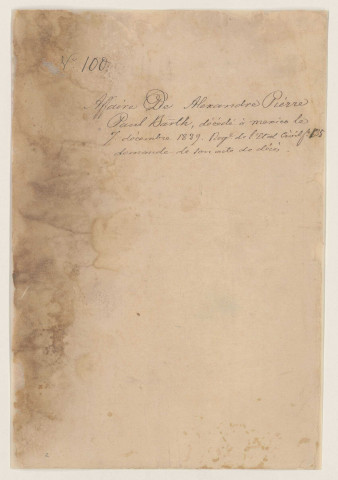 Nº 100.
Affaire De Alexandre Pierre
Paul Barth, décédé à mexico le
7 décembre 1839. Regᵉ de l'Etat Civil fº 128
demande de son acte de décès.